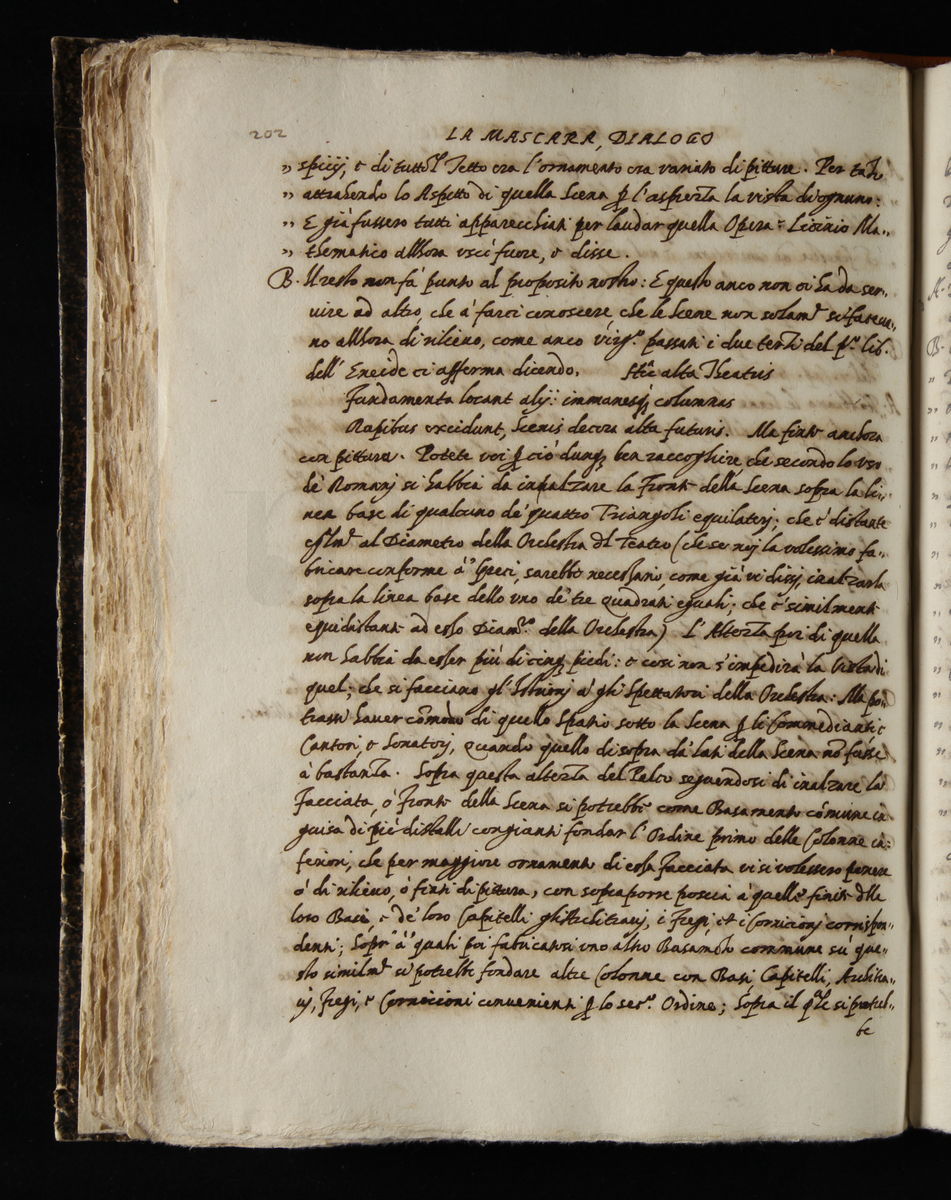 202
LA MASCARA, DIALOGO
„ spicij, e di tutto'l Tetto era l'ornamento era variato di pitture. Per tanto
„ attrahendo lo Aspetto di quella Scena p l'asprezza la vista di ognuno:
„ E già fussero tutti apparecchiati per laudar quella Opera: Licinio Ma-
„ thematico allhora uscì fuore, e disse.
B. Il resto non fà punto al proposito nostro: E questo anco non ci ha da ser-
vire ad altro, che à farci conoscere, che le Scene non solamte. si faceua-
no allhora di rilieuo, come anco virg.o passati i due terzi del p.o lib.
dell' Eneide ci afferma dicendo. hic alta Theatris
Fundamenta locant alij: immanesq; columnas
Rupibus excidunt, Scenis decora alta futuris. Ma finte anchora
con pittura. Potete voi p ciò dunq; ben raccoghire, che secondo lo uso
de' Romanj si habbia da inalzare la Fronte della Scena sopra la li-
nea base di qualcuno de' quattro Triangoli equilaterj; che è distante
eglmte. al Diametro della Orchestra del Teatro (che se noj la volessimo fa-
bricare conforme à' Greci, sarebbe necessario, come già vi dissj, inalzarla
sopra la linea base dello uno de' tre quadrati eguali; che è similmente
equidistante ad esso Diam.ro della Orchestra) L' Altezza poi di quella
non habbia da esser più di cinq; piedi: e così non s'impedirà la vista di
quel; che si facciano gl' Istrionj à gli Spettatori della Orchestra: Ma po-
trassi hauer cõmodo di quello Spatio sotto la Scena p li Commedianti e
Cantori, e Sonatorj, quando quello di sopra da' lati della Scena nõ fusse
à bastanza. Sopra questa altezza del Palco seguendosi di inalzare la
Facciata, ò Fronte della Scena si potrebbe come Basamento cõmune in
guisa di piè distalli congiunti fondar l' Ordine primo delle Colonne in-
feriori, che per maggiore ornamento di essa Facciata vi si volessero ponere
ò di rilieuo, ò finti di pittura, con sopraporre poscia à quelle finite delle
loro Basi, e de' loro Capitelli gli Architravj, i Fregi, et i Cornicionj corrispon-
denti; Sopr' à' quali poi fabricatosi uno altro Basamẽto commune sù que-
sto similmte. si potrebbe fondare altre Colonne con Basi, Capitelli, Architra-
uj, Fregi, e Cornicioni convenienti p lo sec.o Ordine; Sopra il qle si potreb-
be